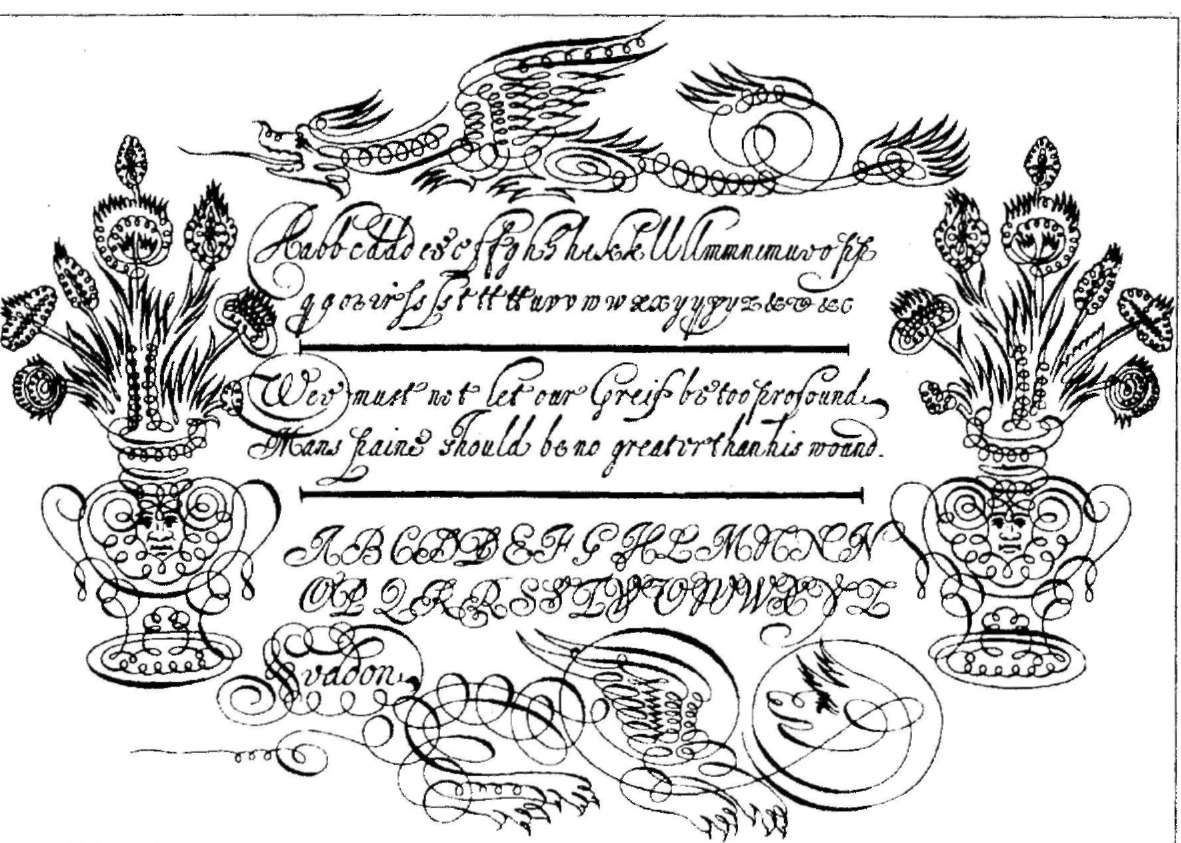 Aabbcddd ese ffghhhikk llllmmnimuvo pp
qqorirssssttttttuvvwwxxyyyyz&&&c
Wee must not let our Greife be too profound
Mans paine should be no greater than his wound.
A B C D D E F G H L M N N N
O P Q R R S S T V W W X Y Z